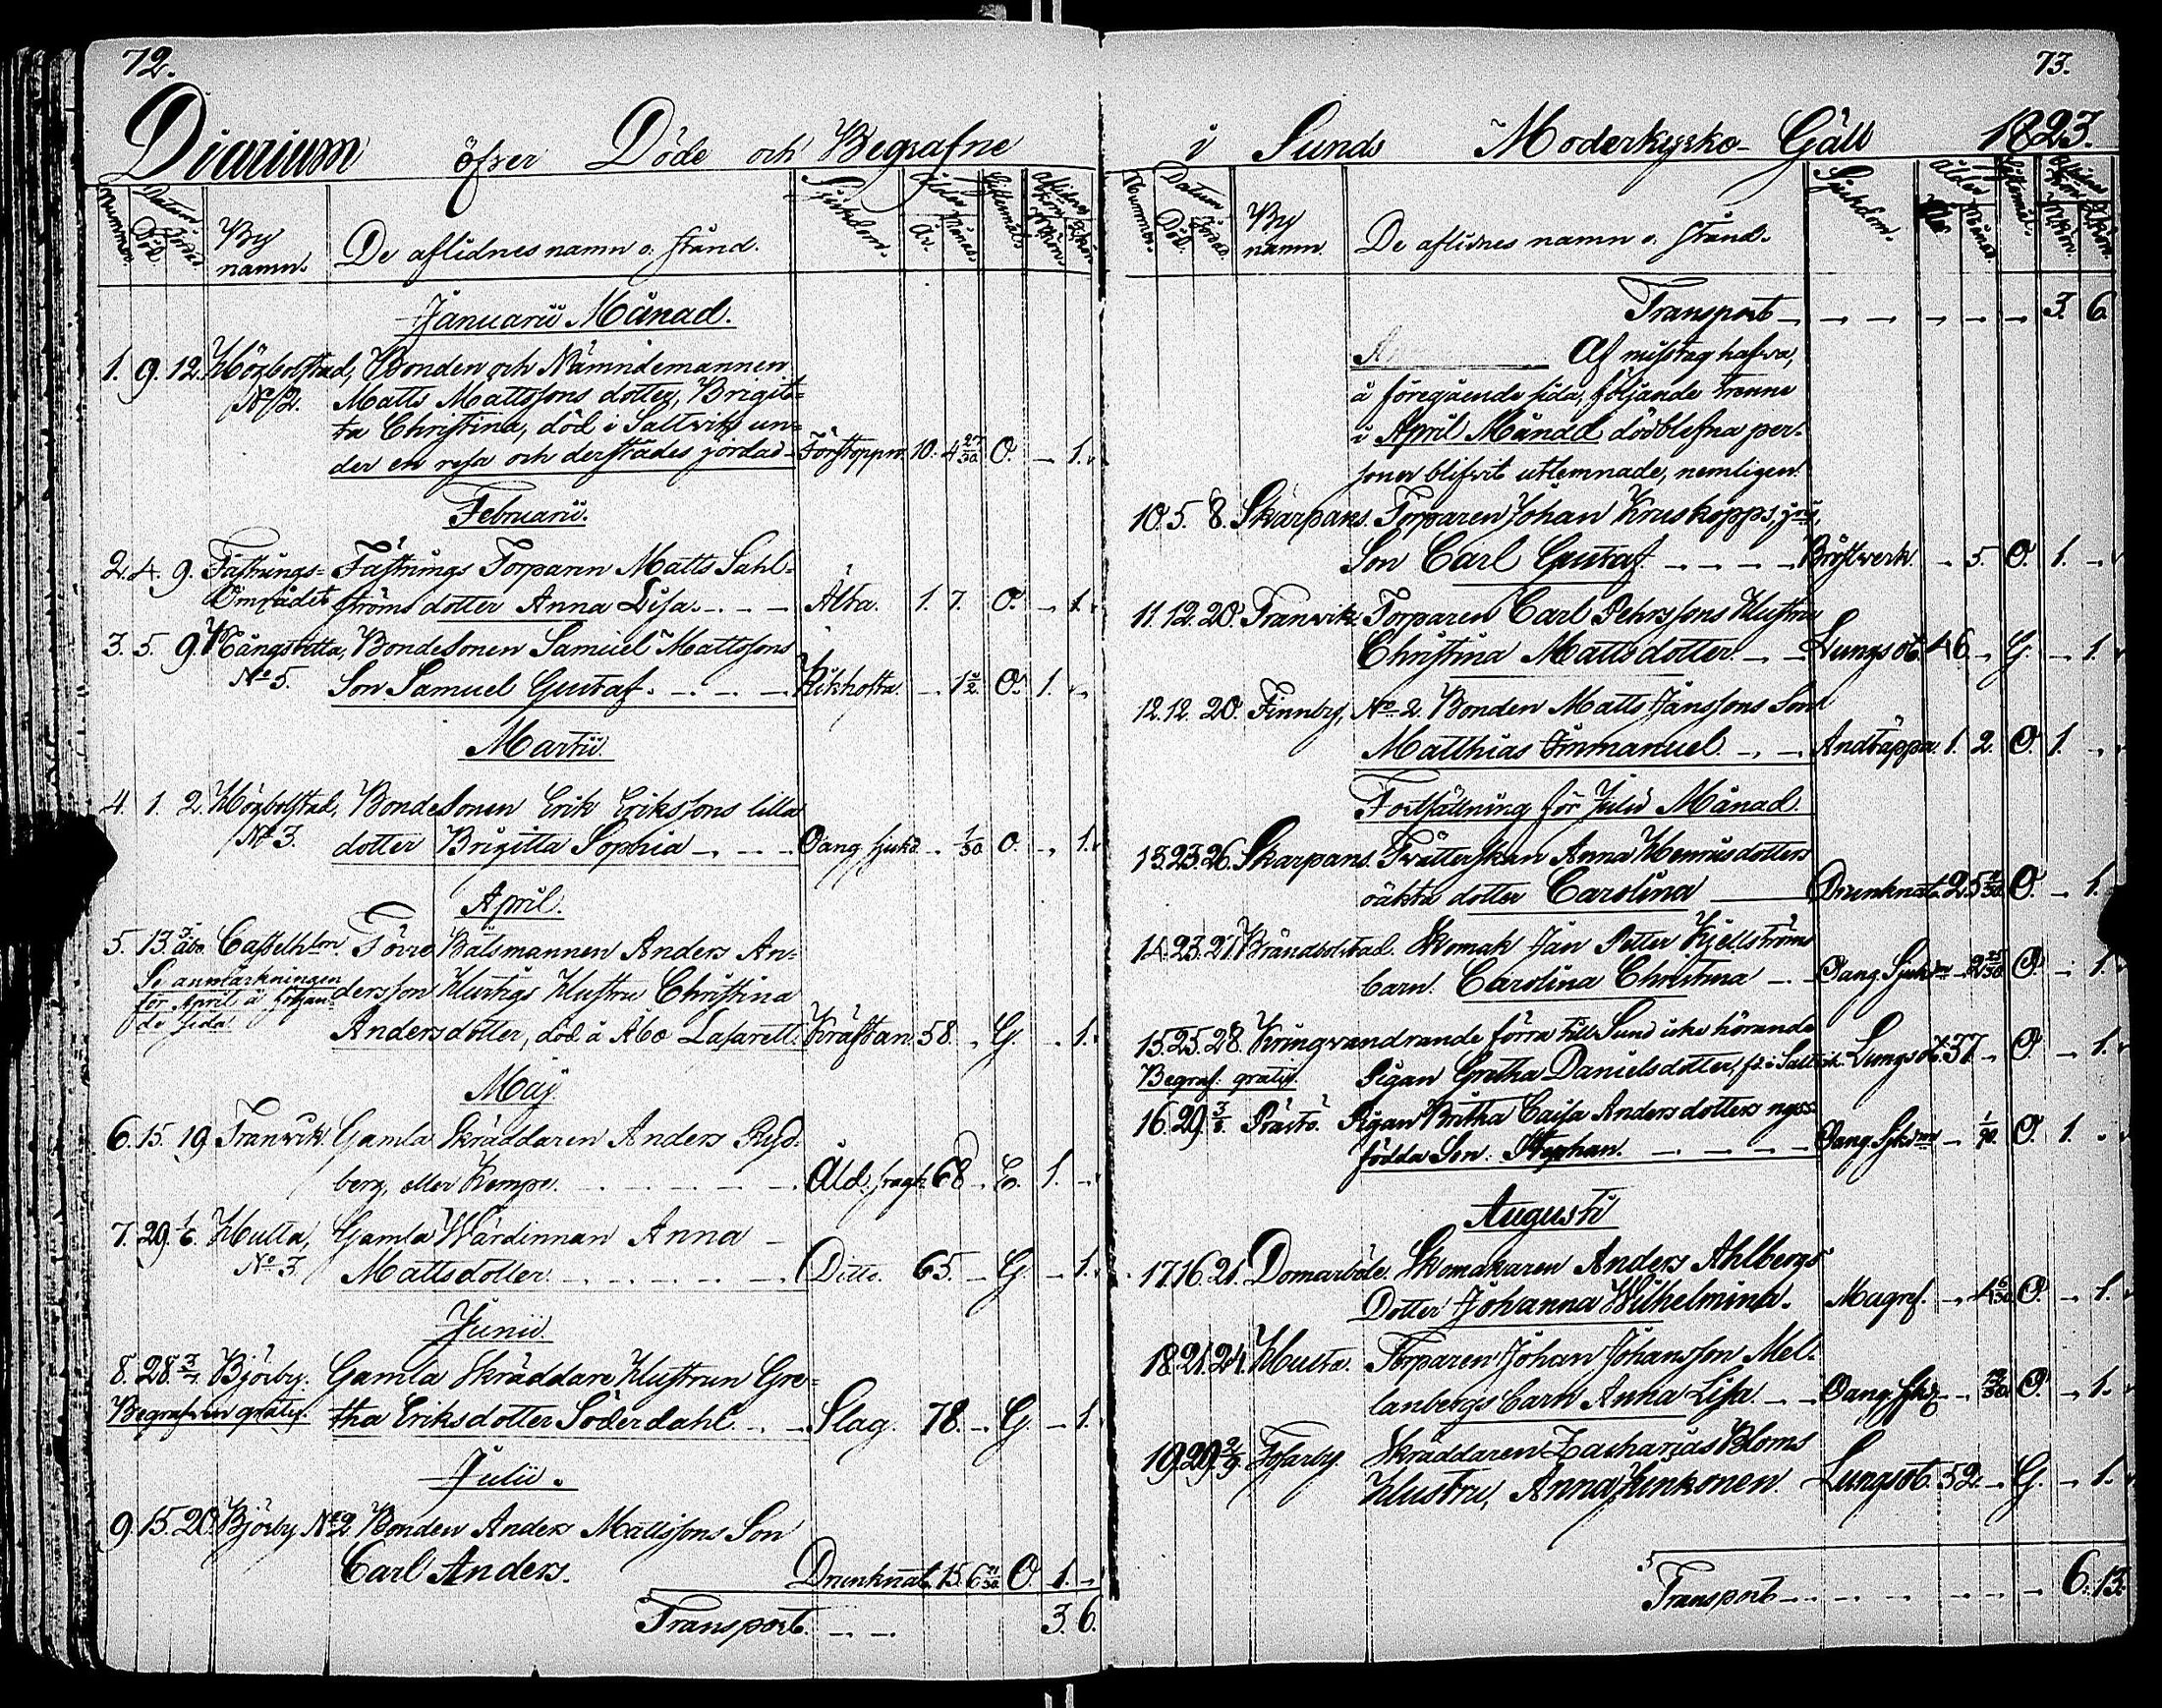 72.
Diarium öfver Döde och Begrafne
Nummer. Datum Död. Jordad By namn. De aflidnes namn o. stånd. Sjukdom. Ålder År. Månad. Giftermål. aflidnes kön M.kön. Q.kön.
Januarii Månad.
1. 9. 12. Högbolstad, Bonden och Nämndemannen
No 2. Matts Mattssons dotter, Brigit=
ta Christina, död i Saltvik un=
der en resa och derstädes jordad Förstoppn. 10. 4 27/30 O. - 1.
Februarii.
2. 4. 9. Fästnings= Fästnings Torparen Matts Sahl=
Området ströms dotter Anna Lisa. - - - Ålta. 1. 7. O. - 1.
3. 5. 9. Mångstekta, BondeSonen Samuel Mattssons
No 5. Son Samuel Gustaf. - - - Kikhosta. - 1 1/2. O. 1. -
Martii.
4. 1. 2. Högbolstad, BondeSonen Erik Erikssons lilla
No 3. dotter Brigitta Sophia - - - Oang. sjukd. - 1/30 O. - 1.
April.
5. 13. Åbo. Castelhlm. Förre Båtsmannen Anders An=
Se anmärkningen
för April å följan=
de sida!
dersson Hurtigs Hustru Christina
Andersdotter, död å Åbo Lasarett. Kräftan. 58. - G. - 1.
Maj
6. 15. 19. Tranvik Gamla Skräddaren Anders Ryd=
berg, eller Kempe. - - - - Åld. sragh. 68 - E. 1. -
7. 29. 1/6. Hulta, Gamla Wärdinnan Anna -
No 3. Mattsdotter. - - - - Ditto. 65. - G. - 1.
Junii.
8. 28. 3/7. Björby. Gamla Skräddare Hustrun Gre=
Begrafven gratis. tha Eriksdotter Söderdahl. - - Slag. 78. - G. - 1.
Julii.
9. 15. 20. Björby No 2. Bonden Anders Mattssons Son
Carl Anders. Drunknat. 15. 6 21/30 O. 1. -
Transport. - - 3. 6.
73.
i Sunds Moderkyrko- Gäll 1823.
Nummer. Datum Död. Jordad. By namn. De aflidnes namn o. stånd. Sjukdom. Ålder Månad. Giftermål. aflidnes kön M.kön. Q.kön.
Transport - - - - - - - 3. 6.
Af misstag hafva,
å föregående sida, följande trenne
i April Månad dödblefna per=
soner blifvit utlemnade, nemligen:
10. 5. 8. Skarpans. Torparen Johan Kruskopps,
Son Carl Gustaf. - - - - Bröstverk. - 5. O. 1. -
11. 12. 20. Tranvik. Torparen Carl Pehrssons Hustru
Christina Mattsdotter. - - Lungsot. 46. - G. - 1.
12. 12. 20. Finnby, No 2. Bonden Matts Janssons Son
Matthias Immanuel. - - Andtäppa. 1. 2. O. 1. -
Fortsättning för Julii Månad.
13. 23. 26. Skarpans. Tvätterskan Anna Henricsdotters
oäkta dotter Carolina Drunknat. 2. 5 O. - 1.
14. 23. 27. Brändbolstad. Skomak. Jan Petter Kjellströms
barn. Carolina Christina - - Oang. Sjukdm - 2 25/30 O. - 1.
15. 25. 28. Kringvandrande förra till Sund icke hörande
Begraf: gratis. Pigan Gretha Danielsdotter, fd. i Saltvik. Lungsot. 37. - O. - 1.
16. 29. 3/8. Prästö. Pigan Britha Caisa Andersdotters nyss=
födda Son: Stephan. - - - - Oang. Sjkdm - O. 1. -
Augusti
17. 16. 21. Domarböle. Skomakaren Anders Ahlbergs
Dotter Johanna Wilhelmina. Magref. - 4 O. - 1.
18. 21. 24. Hulta. Torparen Johan Johansson Mel=
lanbergs barn Anna Lisa. - - Oang. Sjkd. - O. - 1.
19. 29. 2/9. Tosarby. Skräddaren Zacharias Bloms
Hustru, Anna Hinkonen. Lungsot. 52. - G. - 1.
Transport - - - - - - 6. 13.